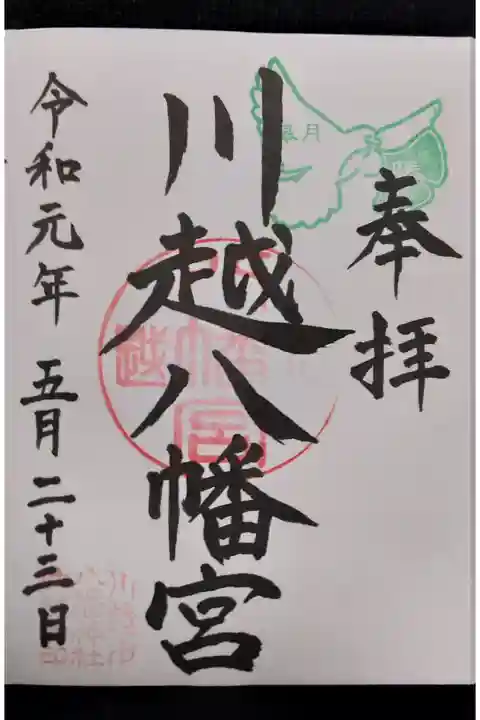 奉拝
皐月
川越八幡宮
令和元年 五月二十三日